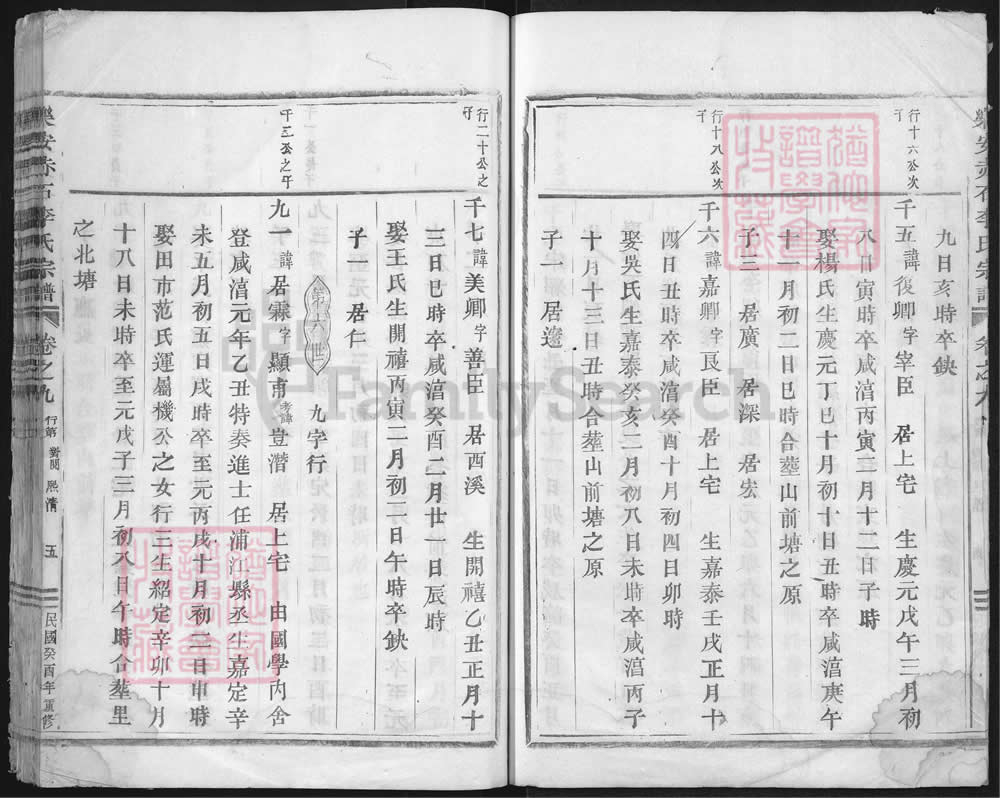 九日亥時卒缺
行十六公次子
千五諱復卿字宰臣 居上宅 生慶元戊午三月初
八日寅時卒咸淳丙寅二月十二日子時
娶楊氏生慶元丁巳十月初十日丑時卒咸淳庚午
十一月初二日巳時合塟山前塘之原
子三 居廣 居深 居宏
行十八公次子
千六諱嘉卿字艮臣 居上宅 生嘉泰壬戌正月十
四日丑時卒咸淳癸酉十月初四日卯時
娶吳氏生嘉泰癸亥二月初八日未時卒咸淳丙子
十月十三日丑時合塟山前塘之原
子一 居邊
樂安赤石李氏宗譜 卷之九 行第 五 民國癸酉年重修
行二十公之子
千七諱美卿字善臣 居西溪 生開禧乙丑正月十
三日巳時卒咸淳癸酉二月廿一日辰時
娶王氏生開禧丙寅二月初日午時卒缺
子一 居仁
第六世 九字行
千三公之子
九一諱居霖字顯甫考諱豈潛 居上宅 由國學內舍
登咸淳元年乙丑特奏進士任浦江縣丞生嘉定辛
未五月初五日戌時卒至元丙戌十月初三日申時
娶田市范氏運屬機公之女行三生紹定辛卯十月
十八日未時卒至元戊子三月初八日午時合塟里
之北塘
FamilySearch